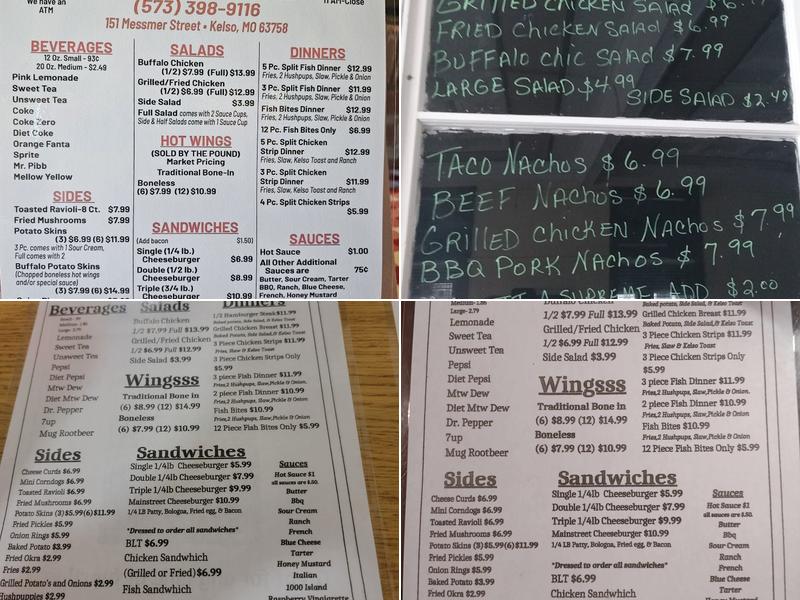 We have an
ATM
(573) 398-9116
11 AM-Close
151 Messmer Street • Kelso, MO 63758
BEVERAGES
12 Oz. Small - 93¢
20 Oz. Medium - $2.49
Pink Lemonade
Sweet Tea
Unsweet Tea
Coke
Coke Zero
Diet Coke
Orange Fanta
Sprite
Mr. Pibb
Mellow Yellow
SIDES
Toasted Ravioli-8 Ct. $7.99
Fried Mushrooms $7.99
Potato Skins
(3) $6.99 (6) $11.99
3 Pc. comes with 1 Sour Cream,
Full comes with 2
Buffalo Potato Skins
(Chopped boneless hot wings
and/or special sauce)
(3) $7.99 (6) $14.99
SALADS
Buffalo Chicken
(1/2) $7.99 (Full) $13.99
Grilled/Fried Chicken
(1/2) $6.99 (Full) $12.99
Side Salad $3.99
Full Salad comes with 2 Sauce Cups,
Side & Half Salads come with 1 Sauce Cup
HOT WINGS
(SOLD BY THE POUND)
Market Pricing
Traditional Bone-In
Boneless
(6) $7.99 (12) $10.99
SANDWICHES
(Add bacon $1.50)
Single (1/4 lb.)
Cheeseburger $6.99
Double (1/2 lb.)
Cheeseburger $8.99
Triple (3/4 lb.)
Cheeseburger $10.99
DINNERS
5 Pc. Split Fish Dinner $12.99
Fries, 2 Hushpups, Slaw, Pickle & Onion
3 Pc. Split Fish Dinner $11.99
Fries, 2 Hushpups, Slaw, Pickle & Onion
Fish Bites Dinner $12.99
Fries, 2 Hushpups, Slaw, Pickle & Onion
12 Pc. Fish Bites Only $6.99
5 Pc. Split Chicken
Strip Dinner $12.99
Fries, Slaw, Kelso Toast and Ranch
3 Pc. Split Chicken
Strip Dinner $11.99
Fries, Slaw, Kelso Toast and Ranch
4 Pc. Split Chicken Strips
$5.99
SAUCES
Hot Sauce $1.00
All Other Additional
Sauces are 75¢
Butter, Sour Cream, Tarter
BBQ, Ranch, Blue Cheese,
French, Honey Mustard
GRILLED CHICKEN SALAD
FRIED CHICKEN SALAD $6.99
BUFFALO CHIC SALAD $7.99
LARGE SALAD $4.99
SIDE SALAD $2.49
TACO NACHOS $6.99
BEEF NACHOS $6.99
GRILLED CHICKEN NACHOS $7.99
BBQ PORK NACHOS $7.99
SUPREME ADD $2.00
Beverages
Medium- 1.86
Large- 2.79
Lemonade
Sweet Tea
Unsweet Tea
Pepsi
Diet Pepsi
Mtw Dew
Diet Mtw Dew
Dr. Pepper
7up
Mug Rootbeer
Sides
Cheese Curds $6.99
Mini Corndogs $6.99
Toasted Ravioli $6.99
Fried Mushrooms $6.99
Potato Skins (3)$5.99(6)$11.99
Fried Pickles $5.99
Onion Rings $5.99
Baked Potato $3.99
Fried Okra $2.99
Fries $2.99
Grilled Potato's and Onions $2.99
Hushpuppies $2.99
Salads
Buffalo Chicken
1/2 $7.99 Full $13.99
Grilled/Fried Chicken
1/2 $6.99 Full $12.99
Side Salad $3.99
Wingsss
Traditional Bone in
(6) $8.99 (12) $14.99
Boneless
(6) $7.99 (12) $10.99
Dinners
1/2 Hamburger Steak $11.99
Baked potato, Side Salad, & Kelso Toast
Grilled Chicken Breast $11.99
Baked Potato, Side Salad,& Kelso Toast.
3 Piece Chicken Strips $11.99
Fries, Slaw & Kelso Toast
3 Piece Chicken Strips Only
$5.99
3 piece Fish Dinner $11.99
Fries,2 Hushpups, Slaw,Pickle & Onion.
2 piece Fish Dinner $10.99
Fries,2 Hushpups, Slaw,Pickle & Onion.
Fish Bites $10.99
Fries,2 Hushpups, Slaw,Pickle & Onion
12 Piece Fish Bites Only $5.99
Sandwiches
Single 1/4lb Cheeseburger $5.99
Double 1/4lb Cheeseburger $7.99
Triple 1/4lb Cheeseburger $9.99
Mainstreet Cheeseburger $10.99
1/4 LB Patty, Bologna, Fried egg, & Bacon
*Dressed to order all sandwiches*
BLT $6.99
Chicken Sandwhich
(Grilled or Fried)$6.99
Fish Sandwhich
Sauces
Hot Sauce $1
all sauces are $.50.
Butter
Bbq
Sour Cream
Ranch
French
Blue Cheese
Tarter
Honey Mustard
Italian
1000 Island
Raspberry Vinaigrette
Medium- 1.86
Large- 2.79
Lemonade
Sweet Tea
Unsweet Tea
Pepsi
Diet Pepsi
Mtw Dew
Diet Mtw Dew
Dr. Pepper
7up
Mug Rootbeer
Sides
Cheese Curds $6.99
Mini Corndogs $6.99
Toasted Ravioli $6.99
Fried Mushrooms $6.99
Potato Skins (3)$5.99(6)$11.99
Fried Pickles $5.99
Onion Rings $5.99
Baked Potato $3.99
Fried Okra $2.99
Buffalo Chicken
1/2 $7.99 Full $13.99
Grilled/Fried Chicken
1/2 $6.99 Full $12.99
Side Salad $3.99
Wingsss
Traditional Bone in
(6) $8.99 (12) $14.99
Boneless
(6) $7.99 (12) $10.99
Baked potato, Side Salad, & Kelso Toast
Grilled Chicken Breast $11.99
Baked Potato, Side Salad,& Kelso Toast.
3 Piece Chicken Strips $11.99
Fries, Slaw & Kelso Toast
3 Piece Chicken Strips Only
$5.99
3 piece Fish Dinner $11.99
Fries,2 Hushpups, Slaw,Pickle & Onion.
2 piece Fish Dinner $10.99
Fries,2 Hushpups, Slaw,Pickle & Onion.
Fish Bites $10.99
Fries,2 Hushpups, Slaw,Pickle & Onion
12 Piece Fish Bites Only $5.99
Sandwiches
Single 1/4lb Cheeseburger $5.99
Double 1/4lb Cheeseburger $7.99
Triple 1/4lb Cheeseburger $9.99
Mainstreet Cheeseburger $10.99
1/4 LB Patty, Bologna, Fried egg, & Bacon
*Dressed to order all sandwiches*
BLT $6.99
Chicken Sandwhich
Sauces
Hot Sauce $1
all sauces are $.50.
Butter
Bbq
Sour Cream
Ranch
French
Blue Cheese
Tarter
Honey Mustard